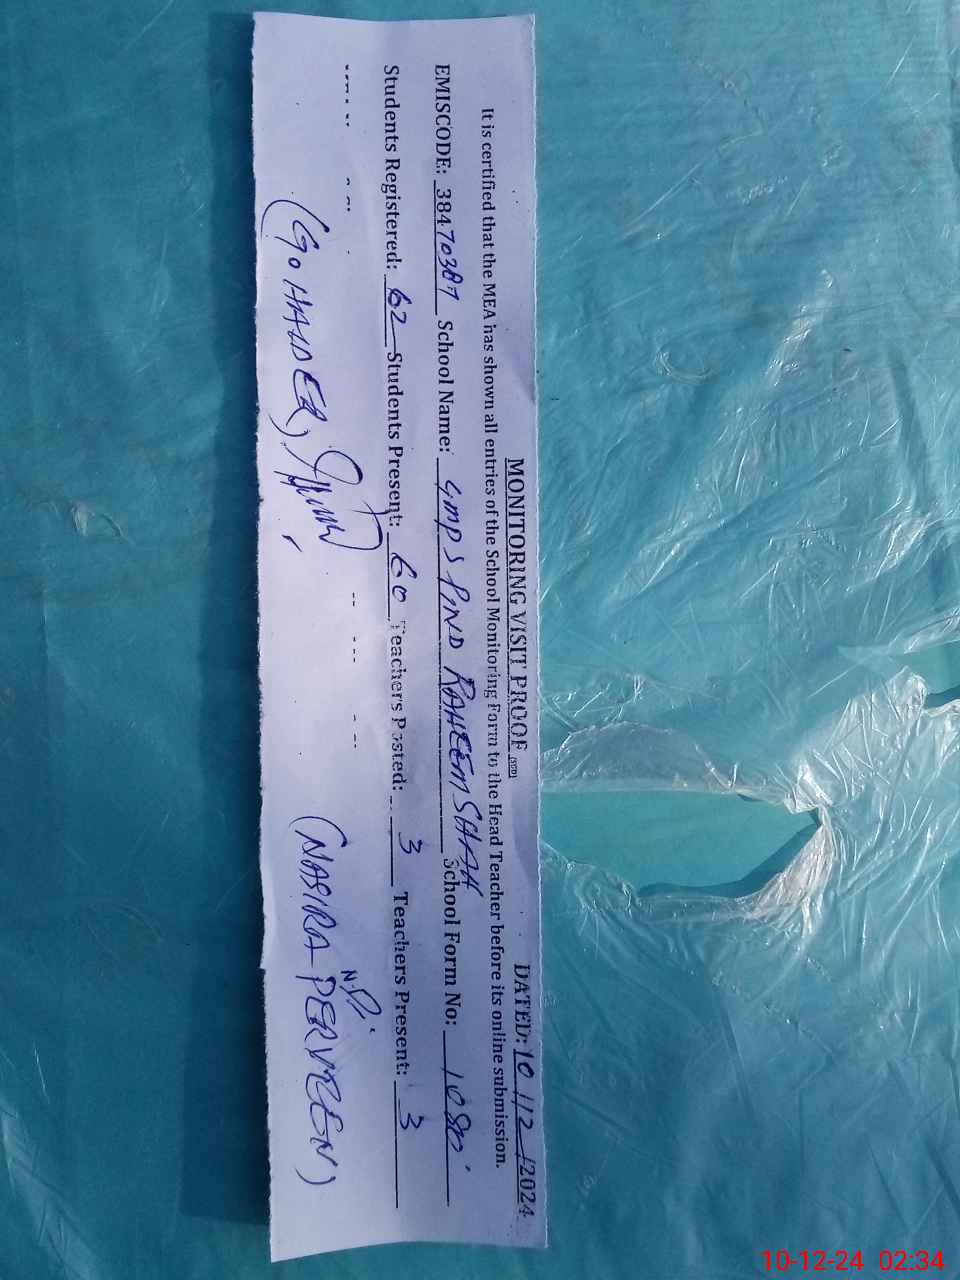 MONITORING VISIT PROOF DATED: 10/12/2024
It is certified that the MEA has shown all entries of the School Monitoring Form to the Head Teacher before its online submission.
EMISCODE: 38470387 School Name: GMPS PIND RAHEEM SHAH School Form No: 1080
Students Registered: 62 Students Present: 60 Teachers Posted: 3 Teachers Present: 3
N.P.
(G. HAIDER) (NASIRA PERVEEN)
10-12-24 02:34